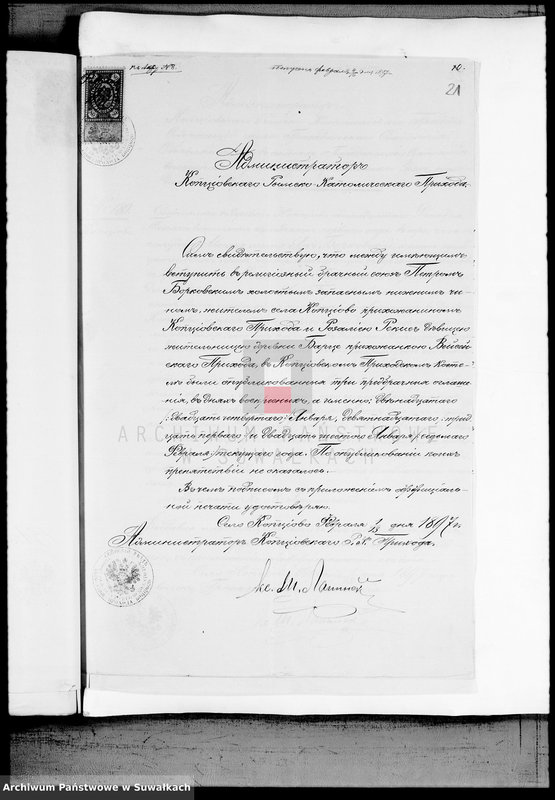 21
Администраторъ
Копціовскаго Римско-Католическаго Прихода.
Симъ свидѣтельствую, что между имѣющимъ
вступить въ религіозный брачный союзъ Петромъ
Борковскимъ холостымъ запаснымъ нижнимъ чи-
номъ, жителемъ села Копціово прихожаниномъ
Копціовскаго Прихода и Розаліею дѣвицею
жительницею деревни прихожанкою Вейсей-
скаго Прихода, въ Копціовскомъ Приходскомъ Косте-
лѣ были опубликованы три предбрачныя оглаше-
нія, въ дняхъ воскресныхъ, а именно: двѣнадцатаго
двадцать четвертаго Января, девятнадцатаго тридцать
перваго и двадцать шестого Января седьмаго
Февраля текущаго года. По опубликованіи коихъ
препятствій не оказалось.
Въ чемъ подписомъ съ приложеніемъ оффиціаль-
ной печати удостовѣряю.
Село Копціово Февраля дня 1897 г.
Администраторъ Копціовскаго Р. К. Прихода,
ARCHIWUM PAŃSTWOWE
W SUWAŁKACH
Archiwum Państwowe w Suwałkach